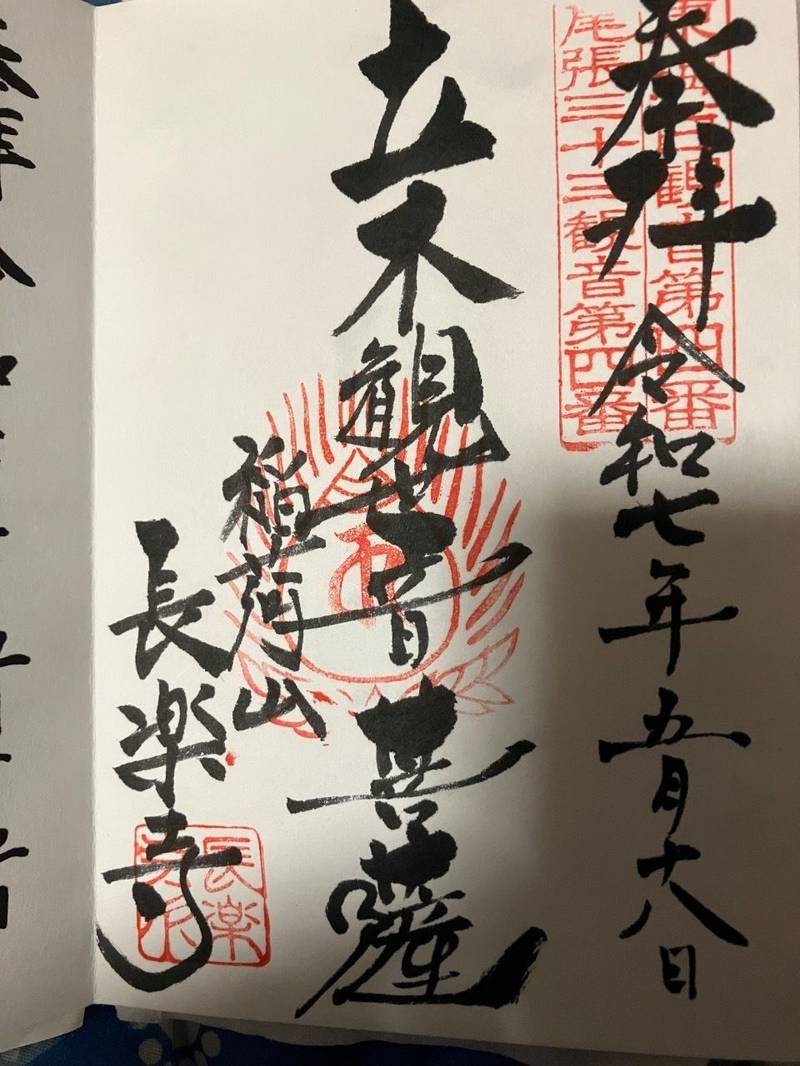 奉拝 令和七年五月十八日
東海百観音第四番
尾張三十三観音第四番
立木観世音菩薩
稲荷山
長楽寺
長楽